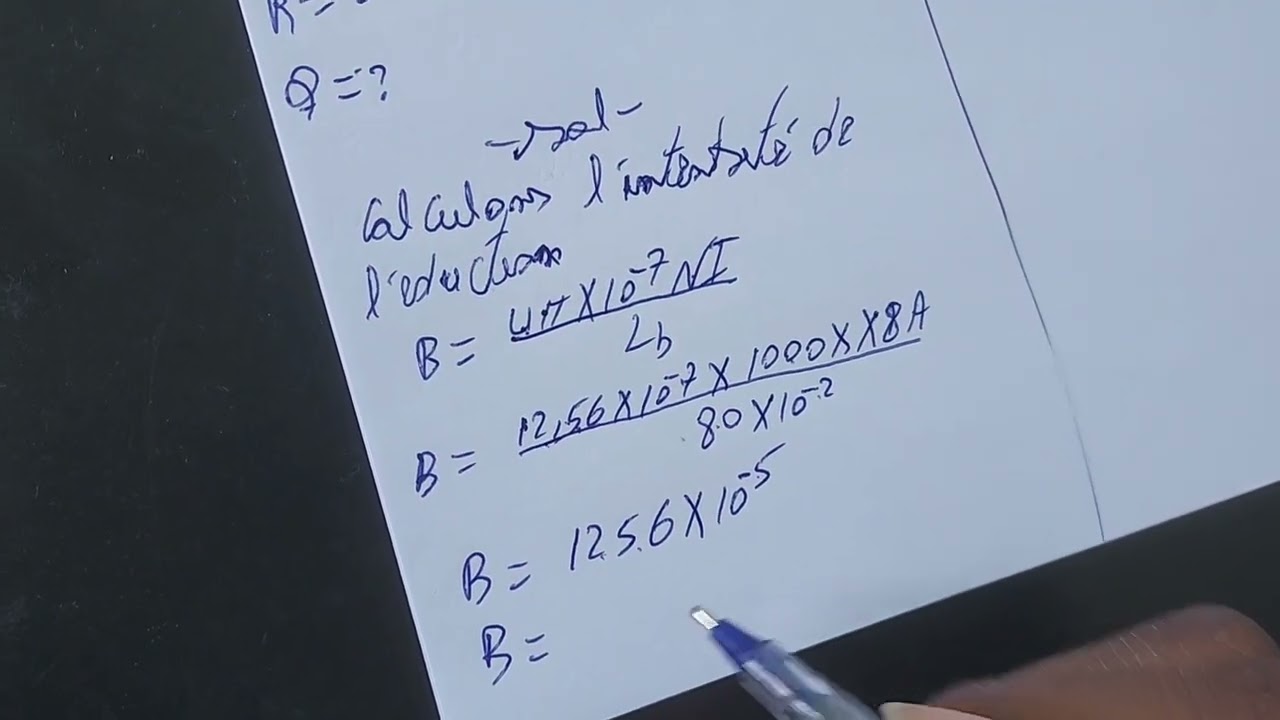 R =
Q = ?
- Sol -
Calculons l'intentité de
l'eduction
B = 4π X 10⁻⁷ NI
Lb
B = 12,56 X 10⁻⁷ X 1000 X X 8A
80 X 10⁻²
B = 125.6 X 10⁻⁵
B =